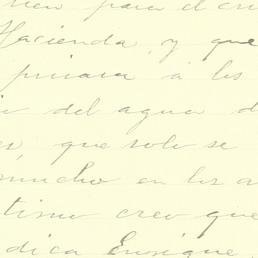 para el
Hacienda, y que
privara á los
del agua d
que solo se
mucho en los a
timo creo que
dica Enrique